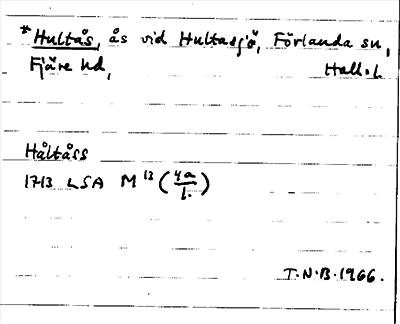 *Hultås, ås vid Hultasjö, Förlanda sn,
Fjäre hd, Hall.l.
Håltåss
1713 LSA M 13 (4a/b.)
T.N.B. 1966.